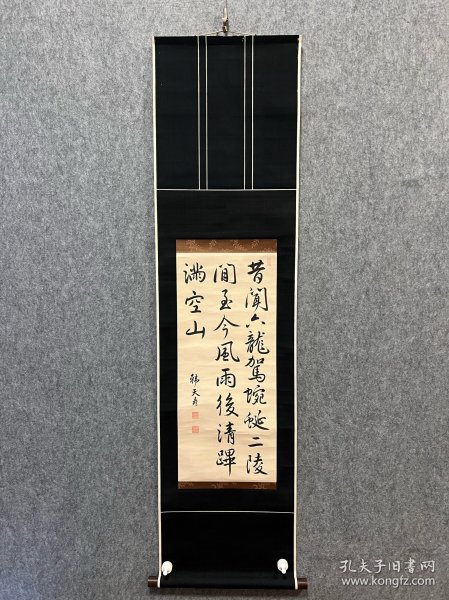 昔聞六龍駕蜿蜒二陵
間至今風雨後清蹕
満空山
韩天寿
孔夫子旧书网
www.kongfz.com